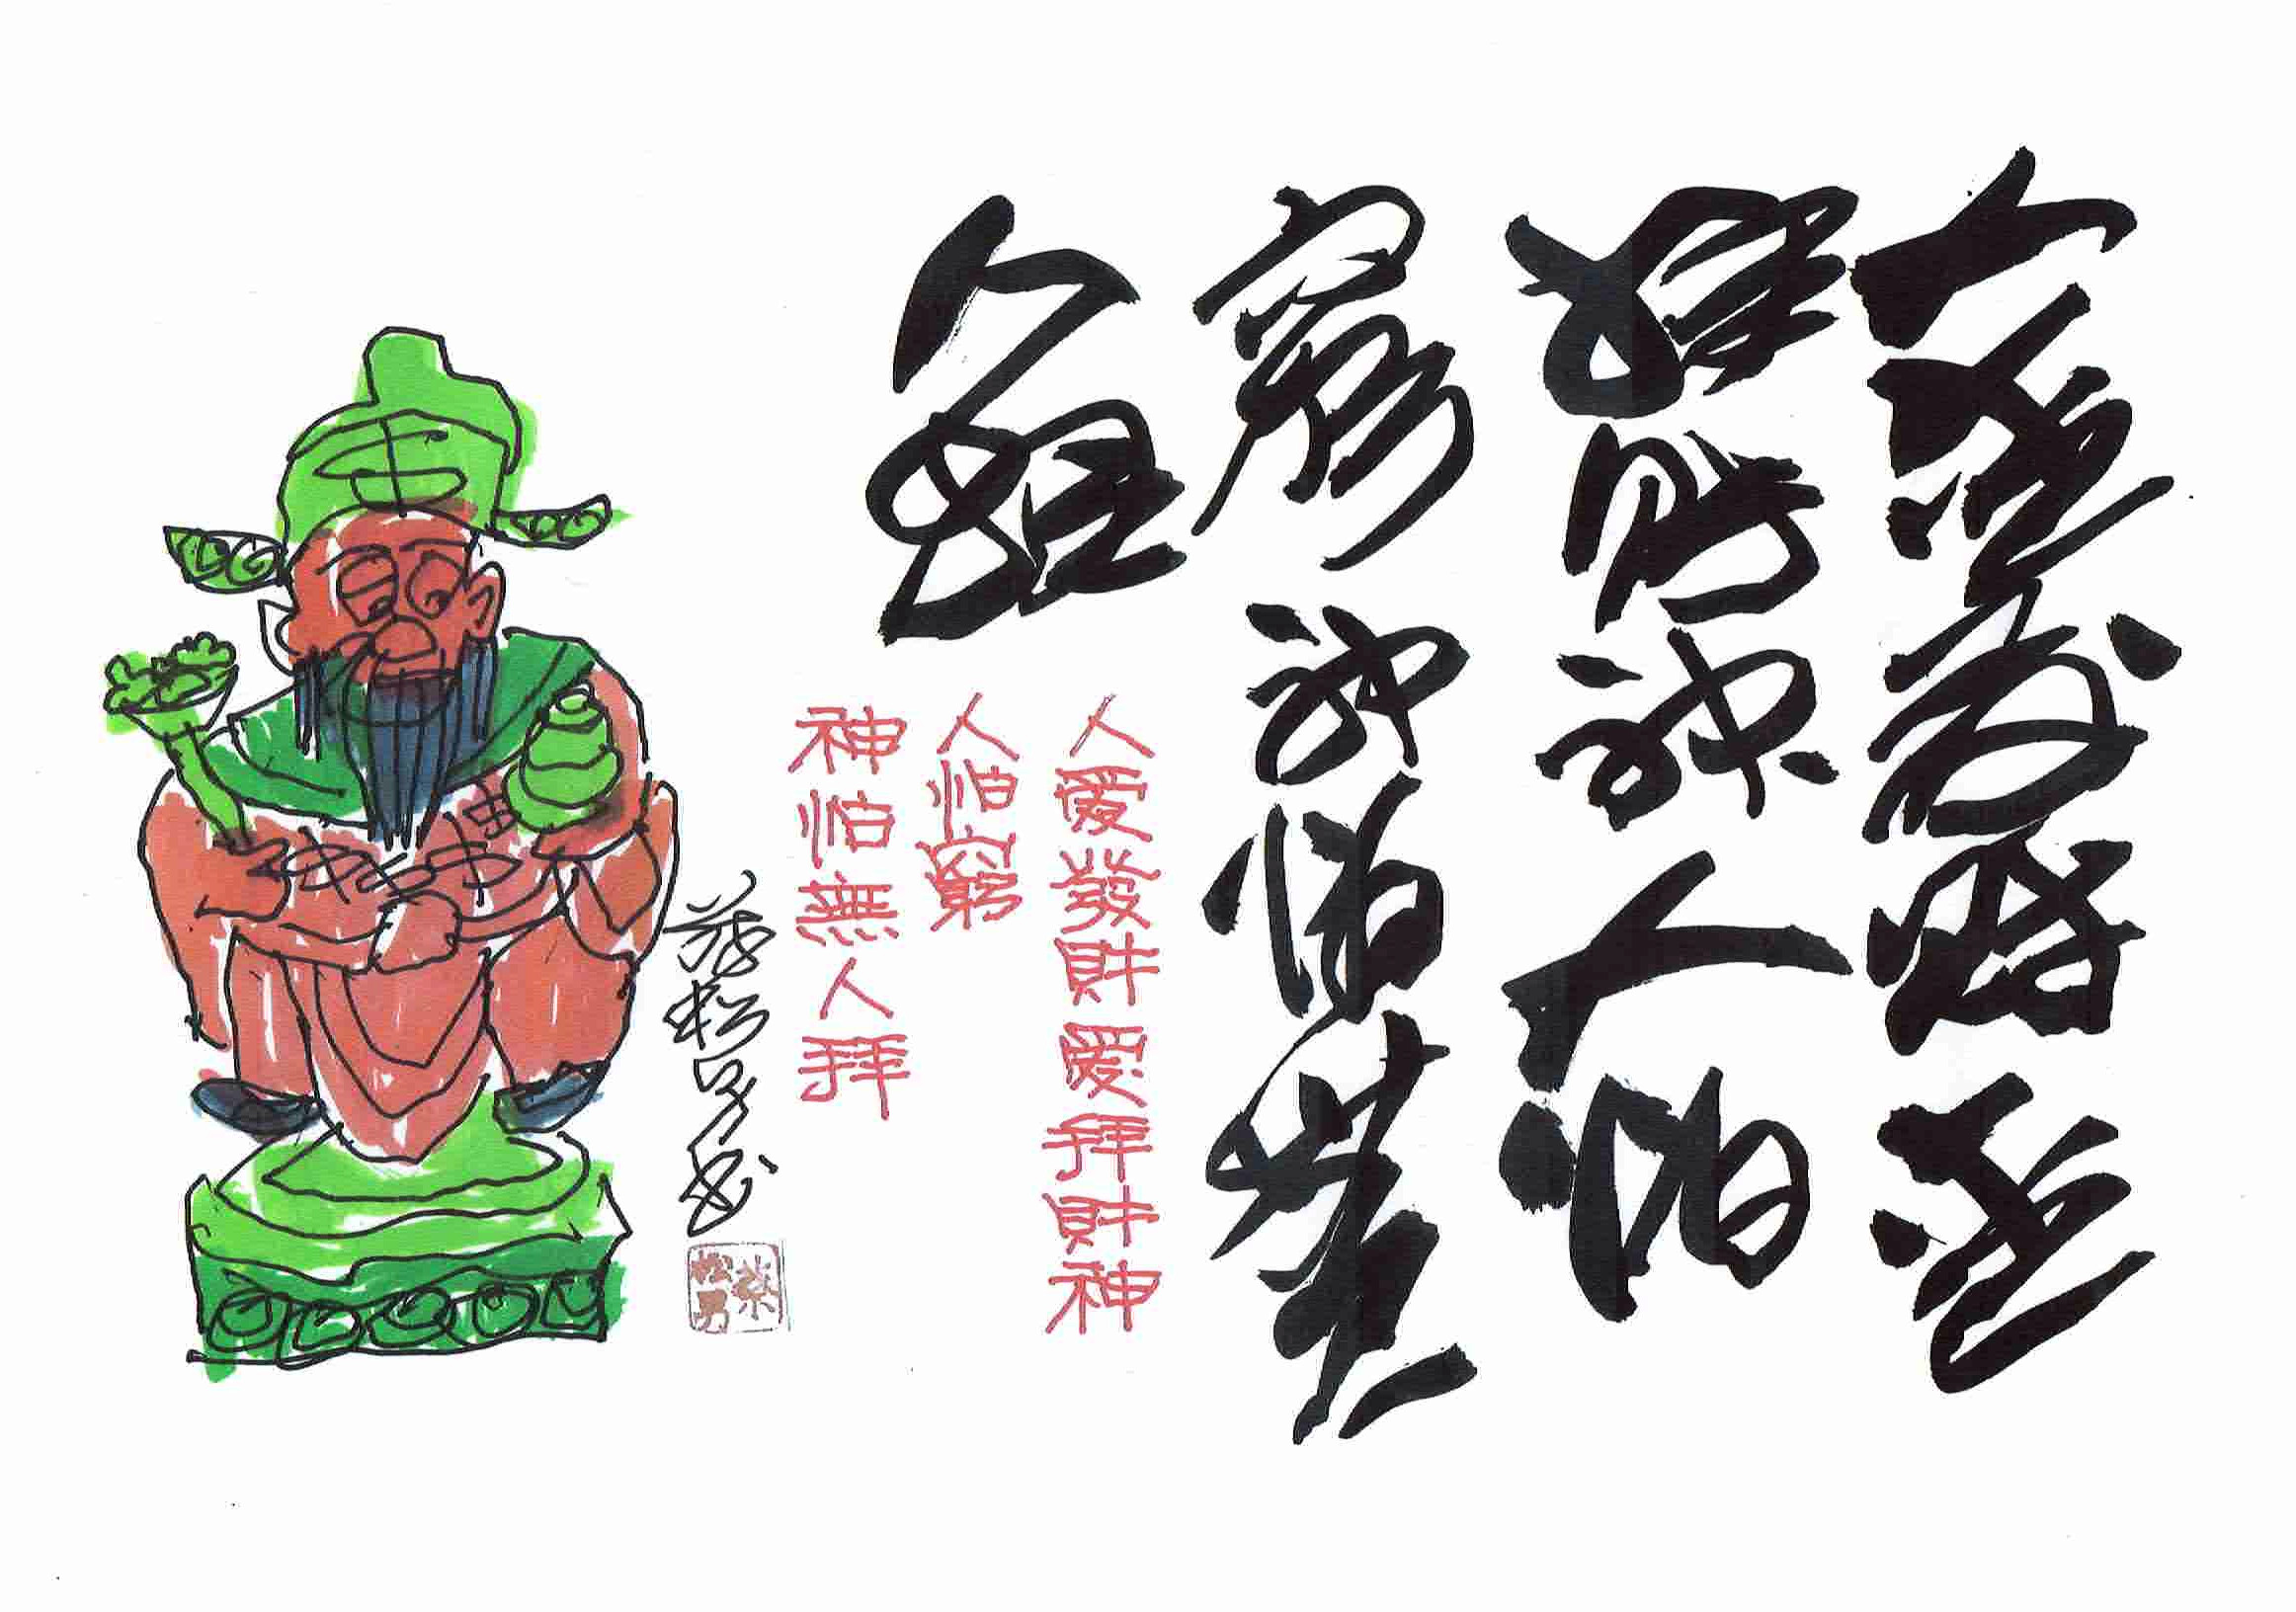 人愛發財愛
拜財神人怕
窮神怕無
人拜
人愛發財愛拜財神
人怕窮
神怕無人拜
蔡松男書
蔡松男